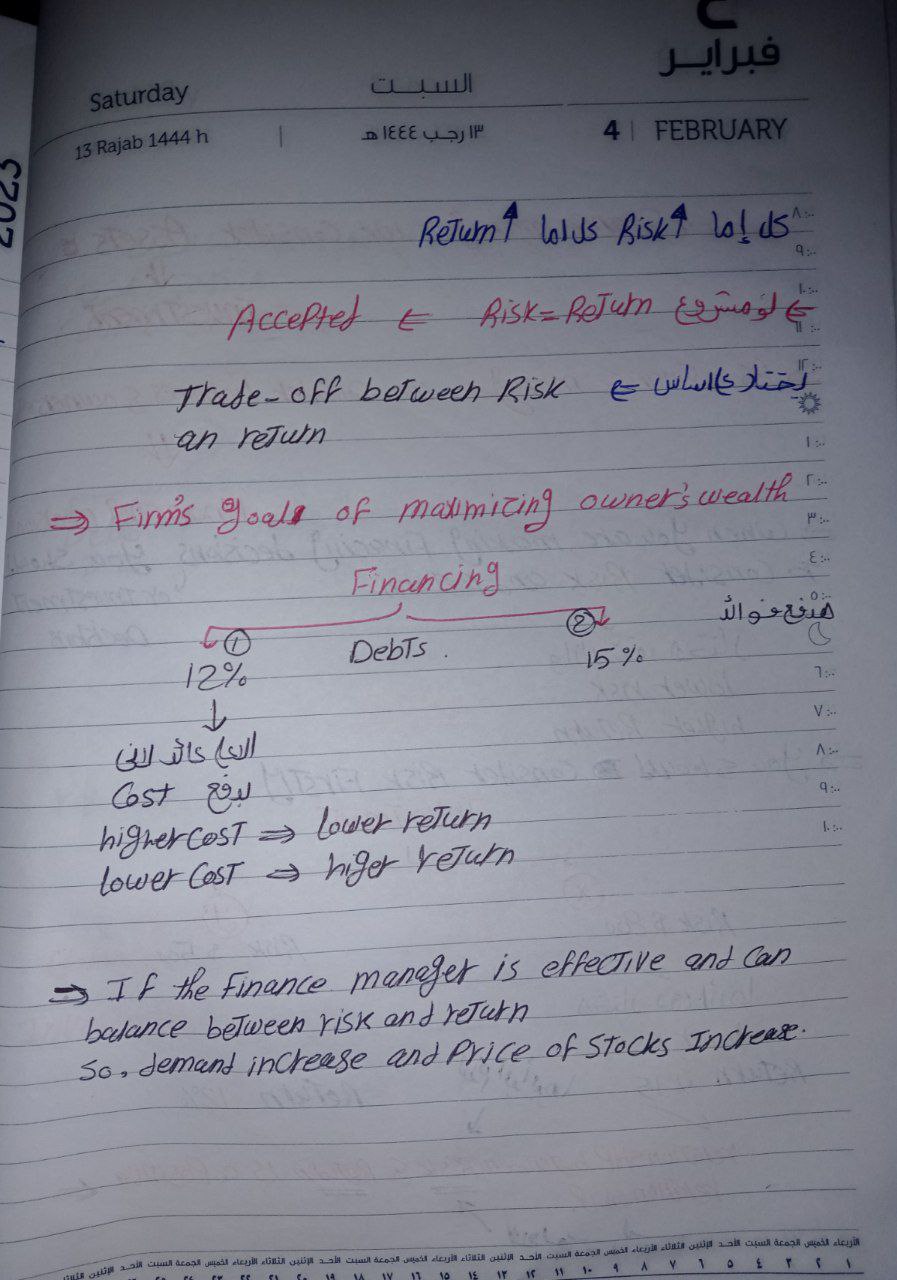 ع
فبراير
Saturday السبت
13 Rajab 1444 h | ١٣ رجب ١٤٤٤ هـ 4 | FEBRUARY
2023
كل إما Risk↑ كل اما Return↑
٨:٠٠
٩:٠٠
⇐ لو مشروع Risk = Return ⇐ Accepted
١٠:٠٠
١١:٠٠
١٢:٠٠
⇐ Trade-off between Risk
an return
١:٠٠
٢:٠٠
⇒ Firm's goals of maximizing owner's wealth
٣:٠٠
٤:٠٠
Financing
٥:٠٠
هندفع فوائد
① Debts. ②
12% 15%
٦:٠٠
↓
٧:٠٠
عائد لانى
٨:٠٠
بدفع Cost
٩:٠٠
higher cost ⇒ lower return
١٠:٠٠
lower Cost ⇒ higer return
⇒ If the Finance manager is effective and can
balance between risk and return
So, demand increase and Price of Stocks Increase.
الأربعاء الخميس الجمعة السبت الأحد الإثنين الثلاثاء الأربعاء الخميس الجمعة السبت الأحد الإثنين الثلاثاء الأربعاء الخميس الجمعة السبت الأحد الإثنين الثلاثاء الأربعاء الخميس الجمعة السبت الأحد الإثنين
١ ٢ ٣ ٤ ٥ ٦ ٧ ٨ ٩ ١٠ ١١ ١٢ ١٣ ١٤ ١٥ ١٦ ١٧ ١٨ ١٩ ٢٠ ٢١ ٢٢ ٢٣ ٢٤